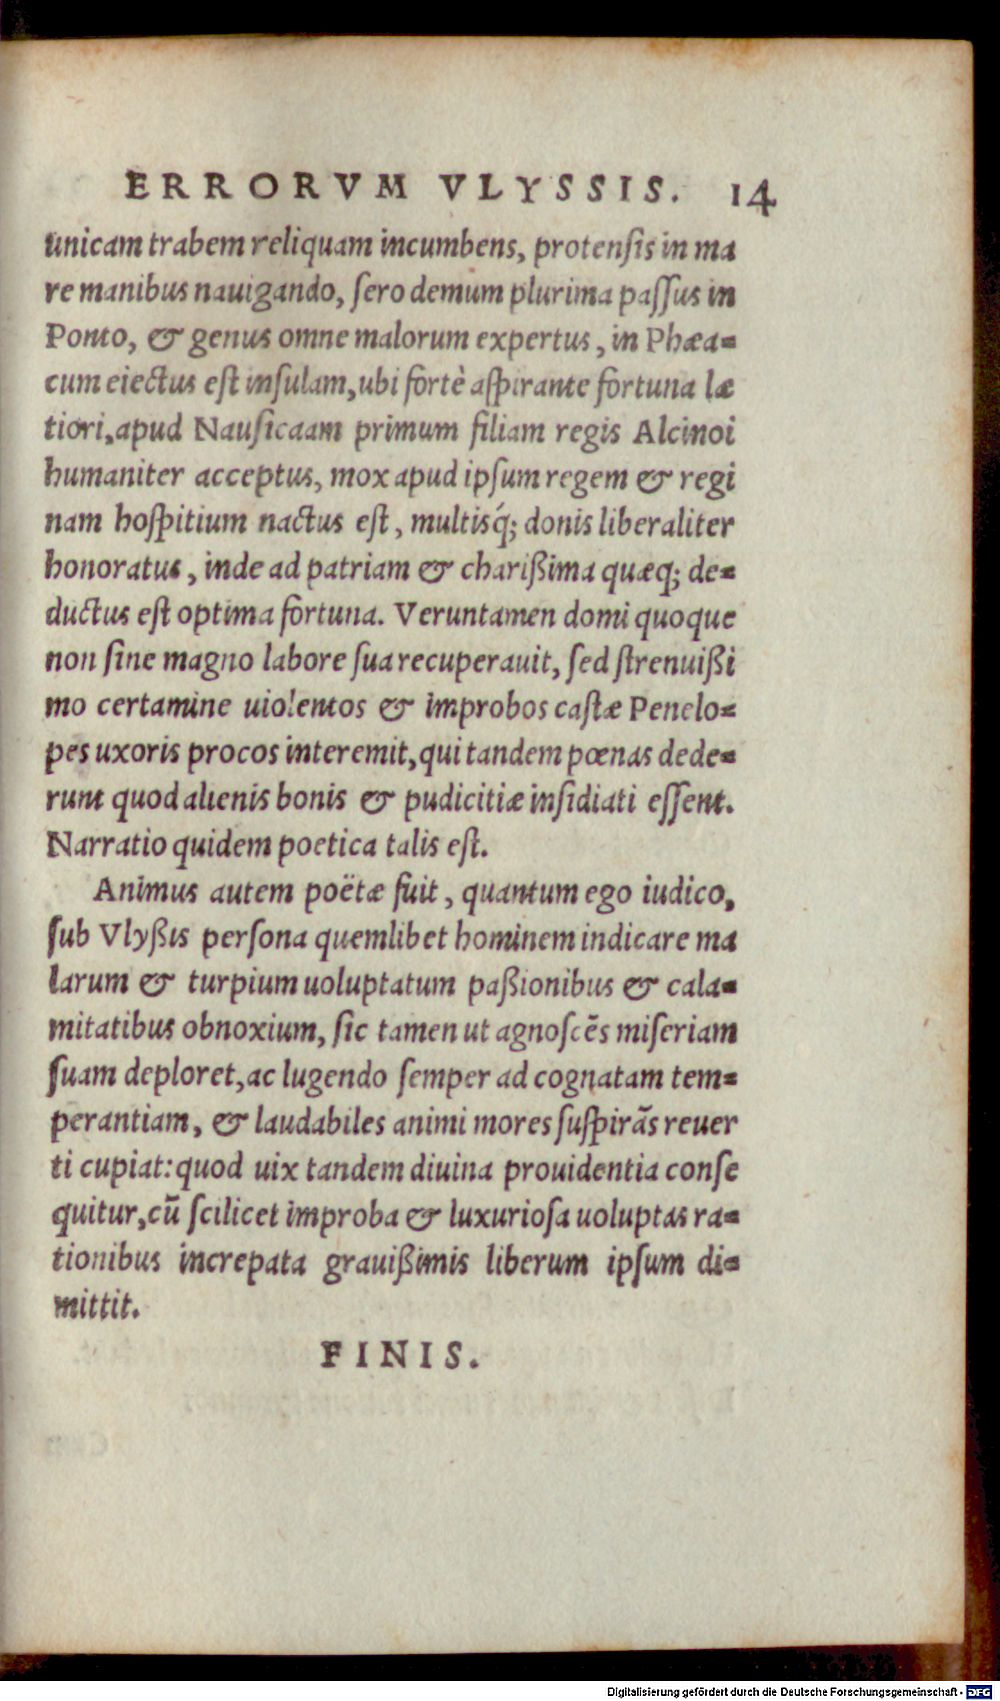 ERRORVM VLYSSIS. 14
unicam trabem reliquam incumbens, protensis in ma
re manibus nauigando, sero demum plurima passus in
Ponto, & genus omne malorum expertus, in Phæa-
cum eiectus est insulam, ubi fortè aspirante fortuna læ
tiori, apud Nausicaam primum filiam regis Alcinoi
humaniter acceptus, mox apud ipsum regem & regi
nam hospitium nactus est, multisq́; donis liberaliter
honoratus, inde ad patriam & charißima quæq; de-
ductus est optima fortuna. Veruntamen domi quoque
non sine magno labore sua recuperauit, sed strenuißi
mo certamine uiolentos & improbos castæ Penelo-
pes uxoris procos interemit, qui tandem pœnas dede-
runt quod alienis bonis & pudicitiæ insidiati essent.
Narratio quidem poetica talis est.
Animus autem poëtæ fuit, quantum ego iudico,
sub Vlyßis persona quemlibet hominem indicare ma
larum & turpium uoluptatum paßionibus & cala-
mitatibus obnoxium, sic tamen ut agnoscēs miseriam
suam deploret, ac lugendo semper ad cognatam tem-
perantiam, & laudabiles animi mores suspirãs reuer
ti cupiat: quod uix tandem diuina prouidentia conse
quitur, cū scilicet improba & luxuriosa uoluptas ra-
tionibus increpata grauißimis liberum ipsum di-
mittit.
FINIS.
Digitalisierung gefördert durch die Deutsche Forschungsgemeinschaft - DFG